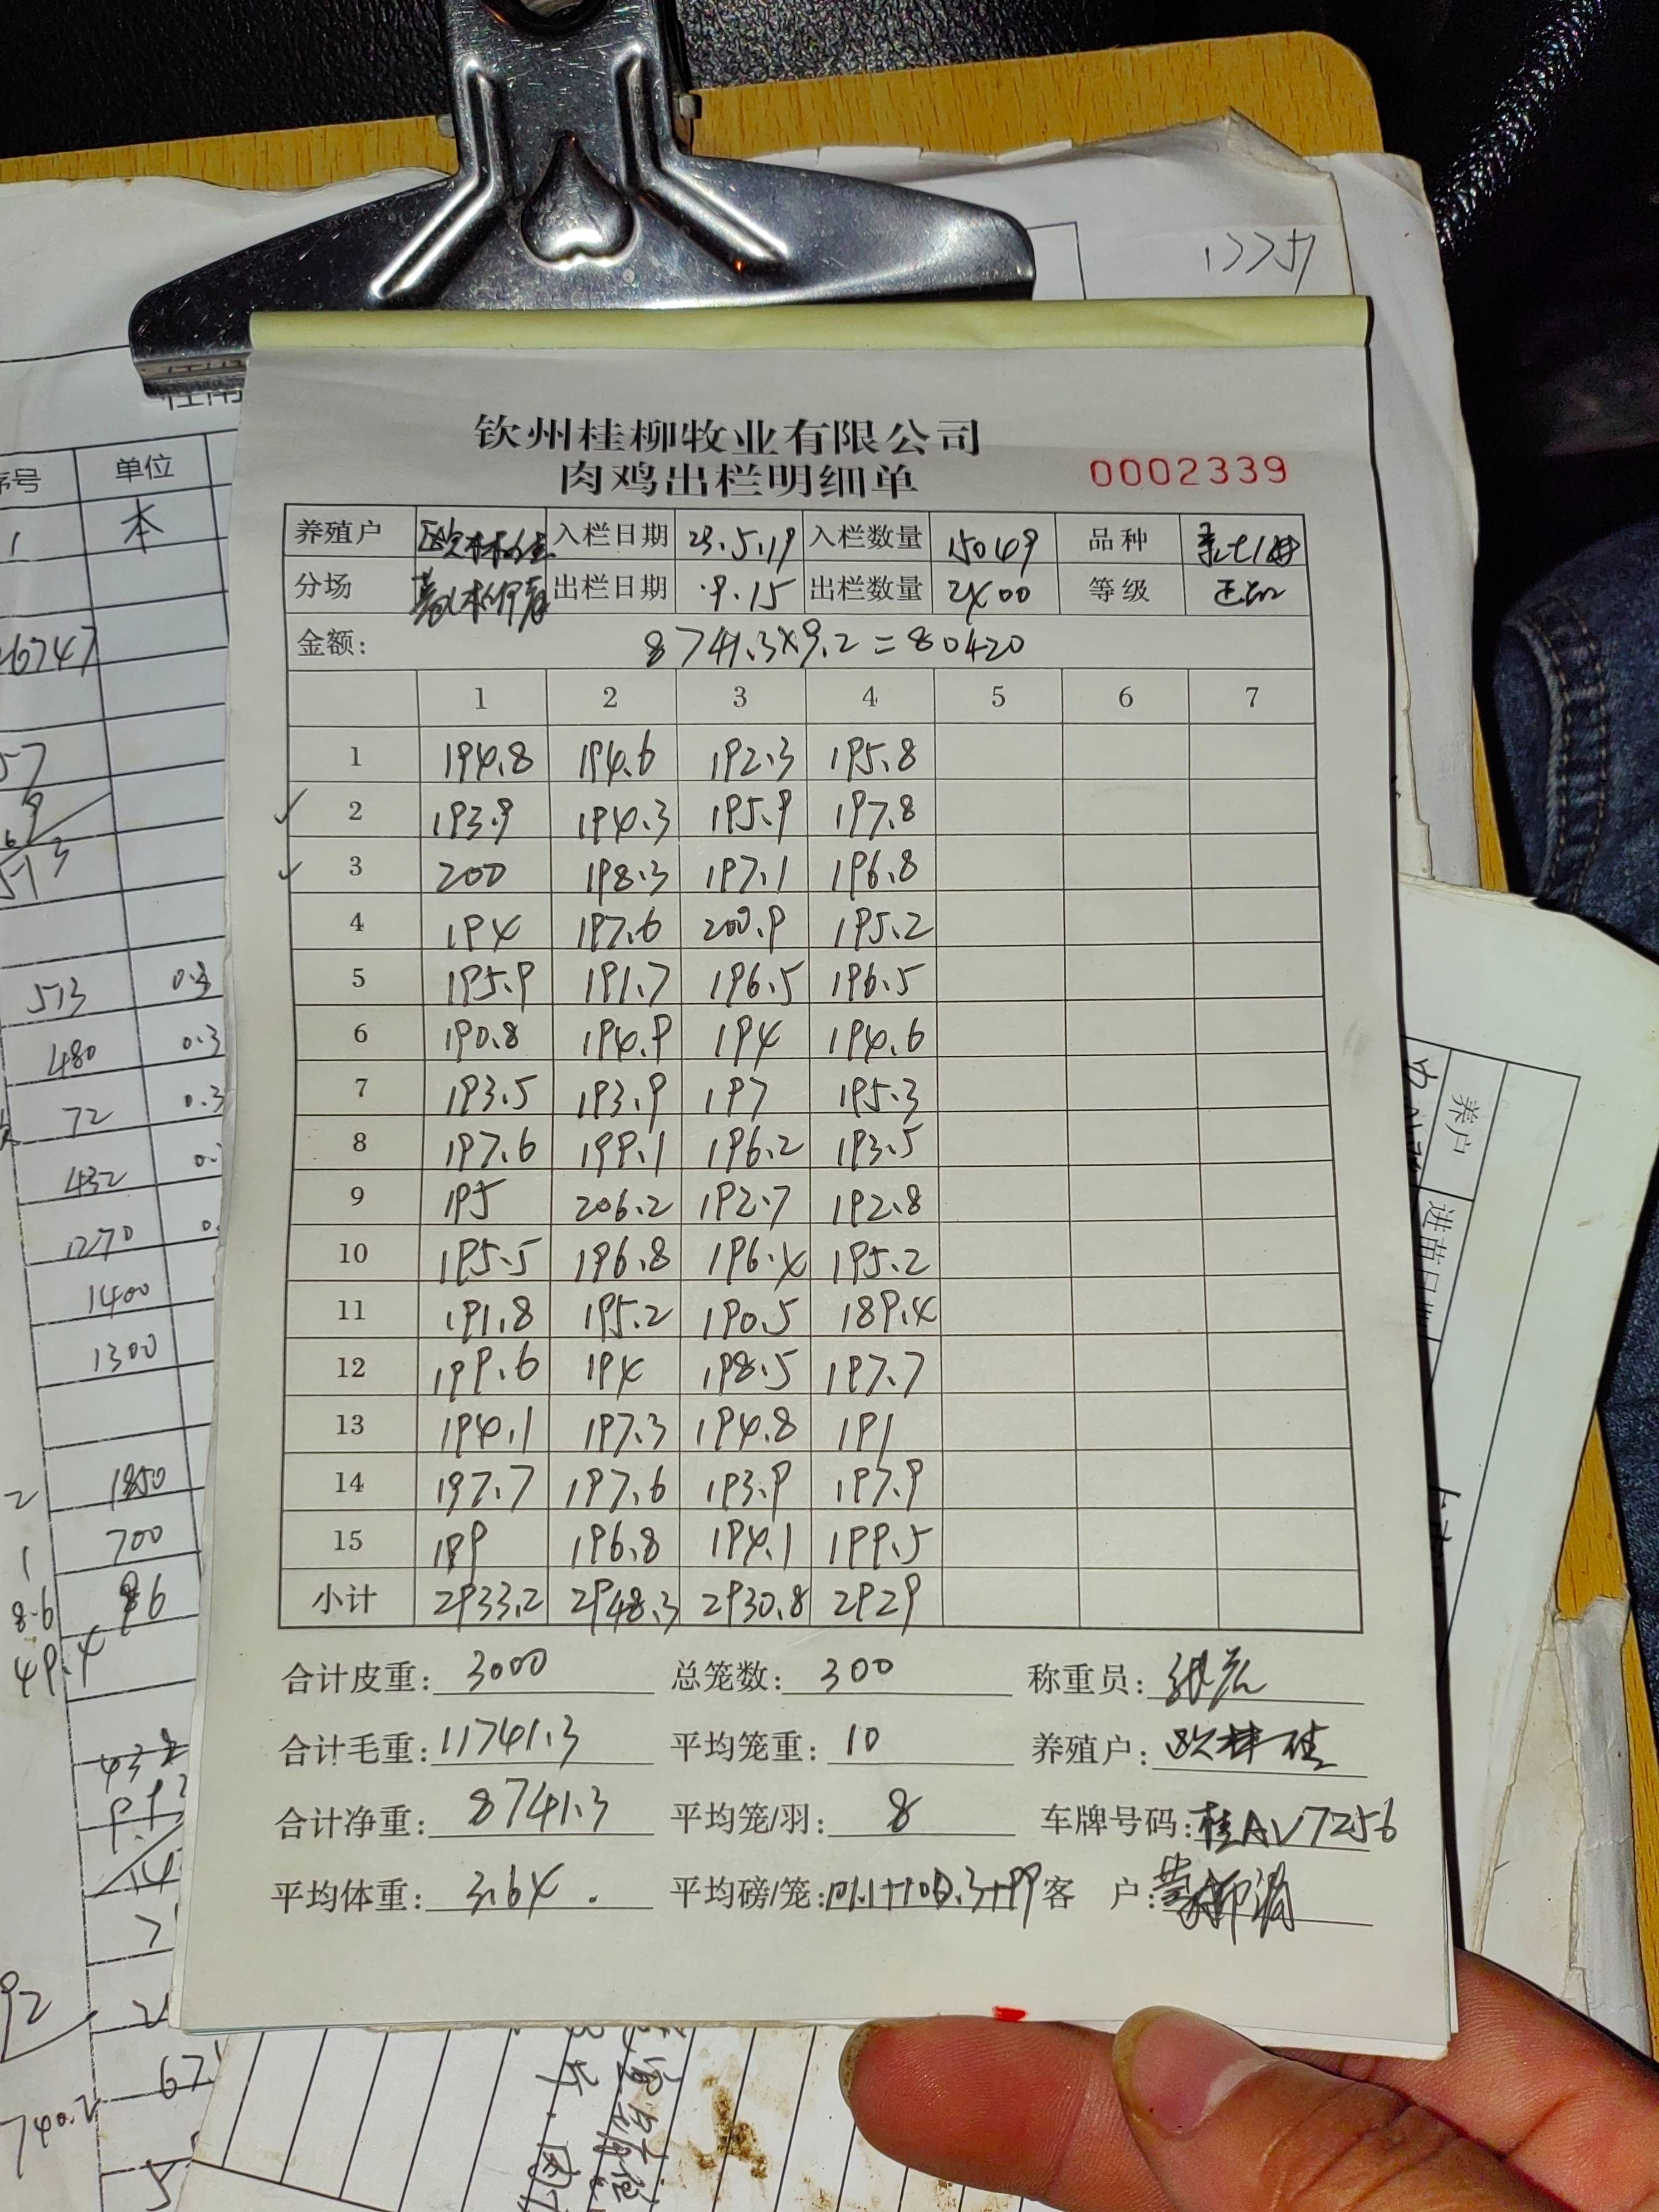 钦州桂柳牧业有限公司
肉鸡出栏明细单 0002339
养殖户 欧林佳 入栏日期 23.5.19 入栏数量 15049 品种
分场 出栏日期 .9.15 出栏数量 2400 等级 正品
金额: 8741.3×9.2=80420
1 2 3 4 5 6 7
1 194.8 194.6 192.3 195.8
2 193.9 194.3 195.9 197.8
3 200 198.3 197.1 196.8
4 194 197.6 200.9 195.2
5 195.9 191.7 196.5 196.5
6 190.8 194.9 194 194.6
7 193.5 193.9 197 195.3
8 197.6 199.1 196.2 193.5
9 195 206.2 192.7 192.8
10 195.5 196.8 196.4 195.2
11 191.8 195.2 190.5 189.4
12 199.6 194 198.5 197.7
13 194.1 197.3 194.8 191
14 197.7 197.6 193.9 197.9
15 199 196.8 194.1 199.5
小计 2933.2 2948.3 2930.8 2929
合计皮重: 3000 总笼数: 300 称重员:
合计毛重: 11741.3 平均笼重: 10 养殖户: 欧林佳
合计净重: 8741.3 平均笼/羽: 8 车牌号码: 桂AV7256
平均体重: 3.64. 平均磅/笼: 101.1+100.3+99 客 户:
序号 单位
1 本
26747
57
513 0.3
480 0.3
72 0.3
432
1270
1400
1300
2 1850
1 700
8.6 86
49.4
432
740.2
养户
进苗日期